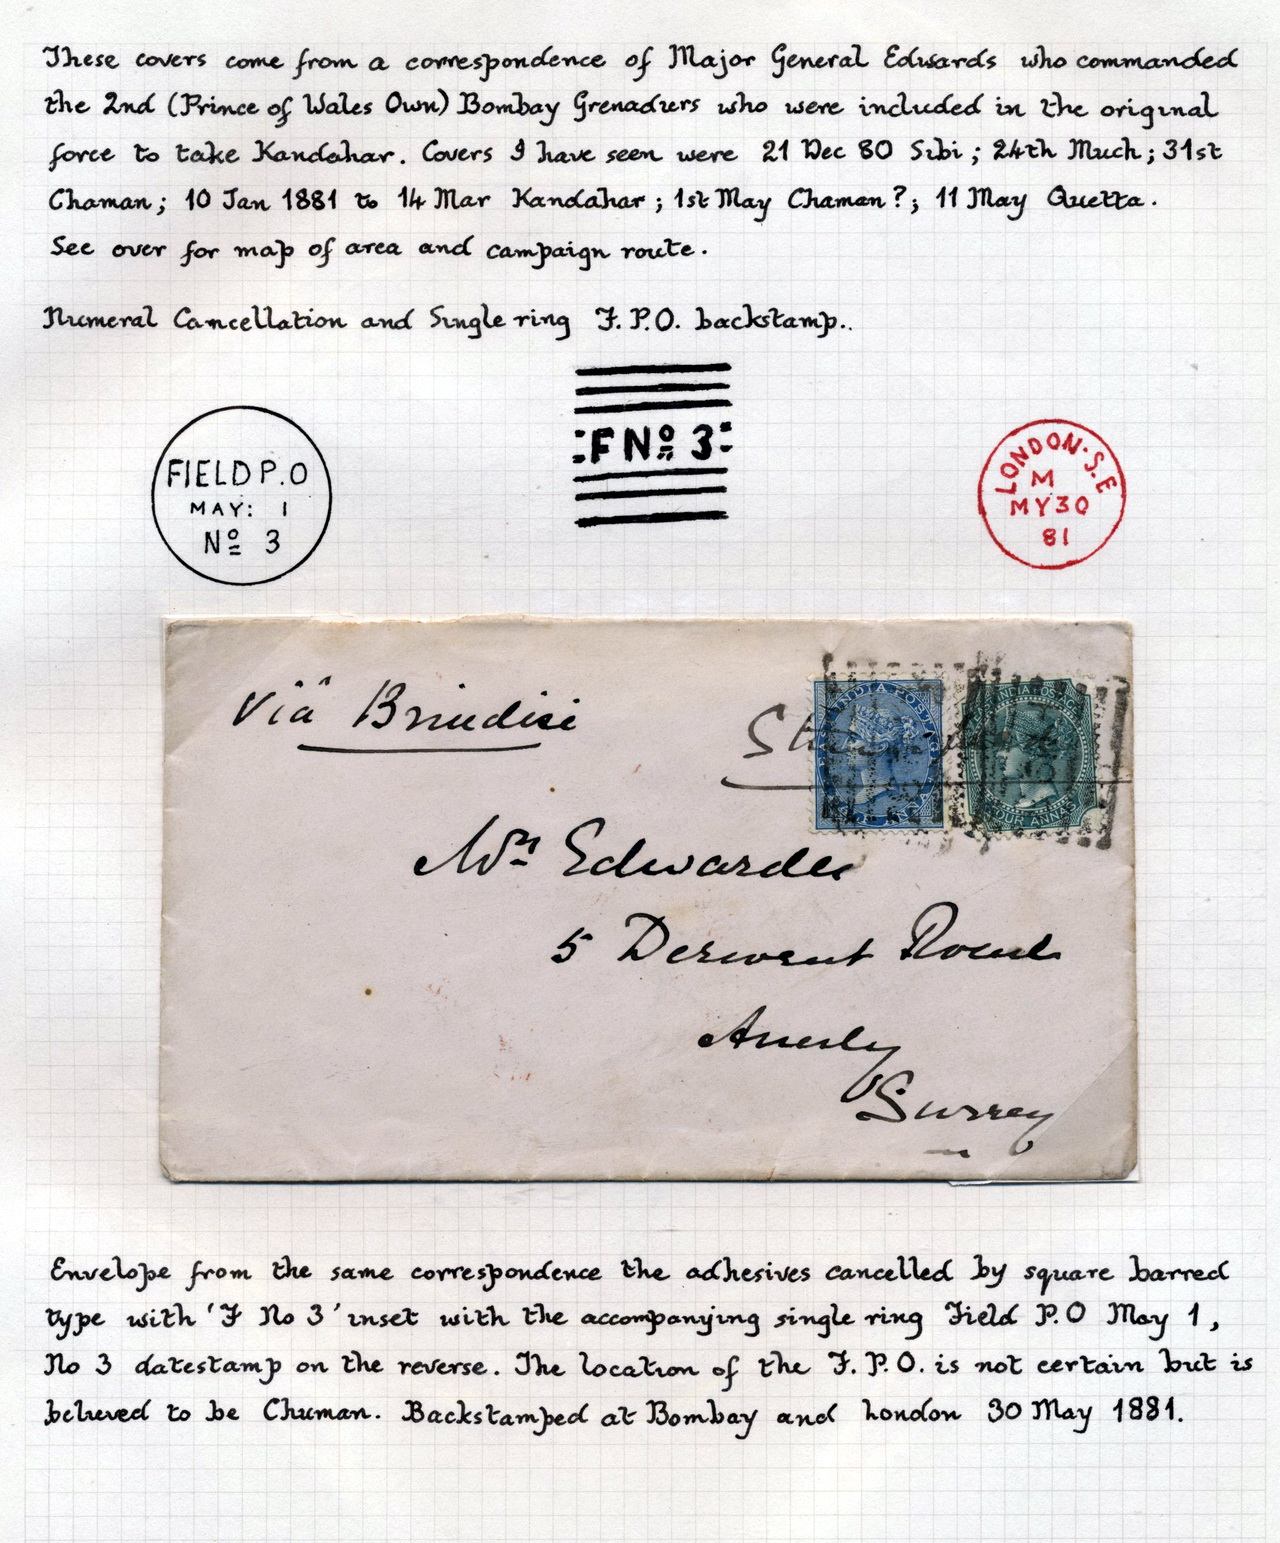 These covers come from a correspondence of Major General Edwards who commanded
the 2nd (Prince of Wales Own) Bombay Grenadiers who were included in the original
force to take Kandahar. Covers I have seen were 21 Dec 80 Sibi; 24th Much; 31st
Chaman; 10 Jan 1881 to 14 Mar Kandahar; 1st May Chaman?; 11 May Quetta.
See over for map of area and campaign route.
Numeral Cancellation and Single ring F.P.O. backstamp..
FIELD P.O
MAY: 1
Nº 3
F Nº 3
LONDON·S.E
M
MY30
81
Viâ Brindisi
INDIA POSTAGE
ANNA
INDIA POSTAGE
FOUR ANNAS
Mrs Edwardes
5 Derwent Road
Anerly
Surrey
Envelope from the same correspondence the adhesives cancelled by square barred
type with 'F No 3' inset with the accompanying single ring Field P.O May 1,
No 3 datestamp on the reverse. The location of the F.P.O. is not certain but is
believed to be Chuman. Backstamped at Bombay and London 30 May 1881.